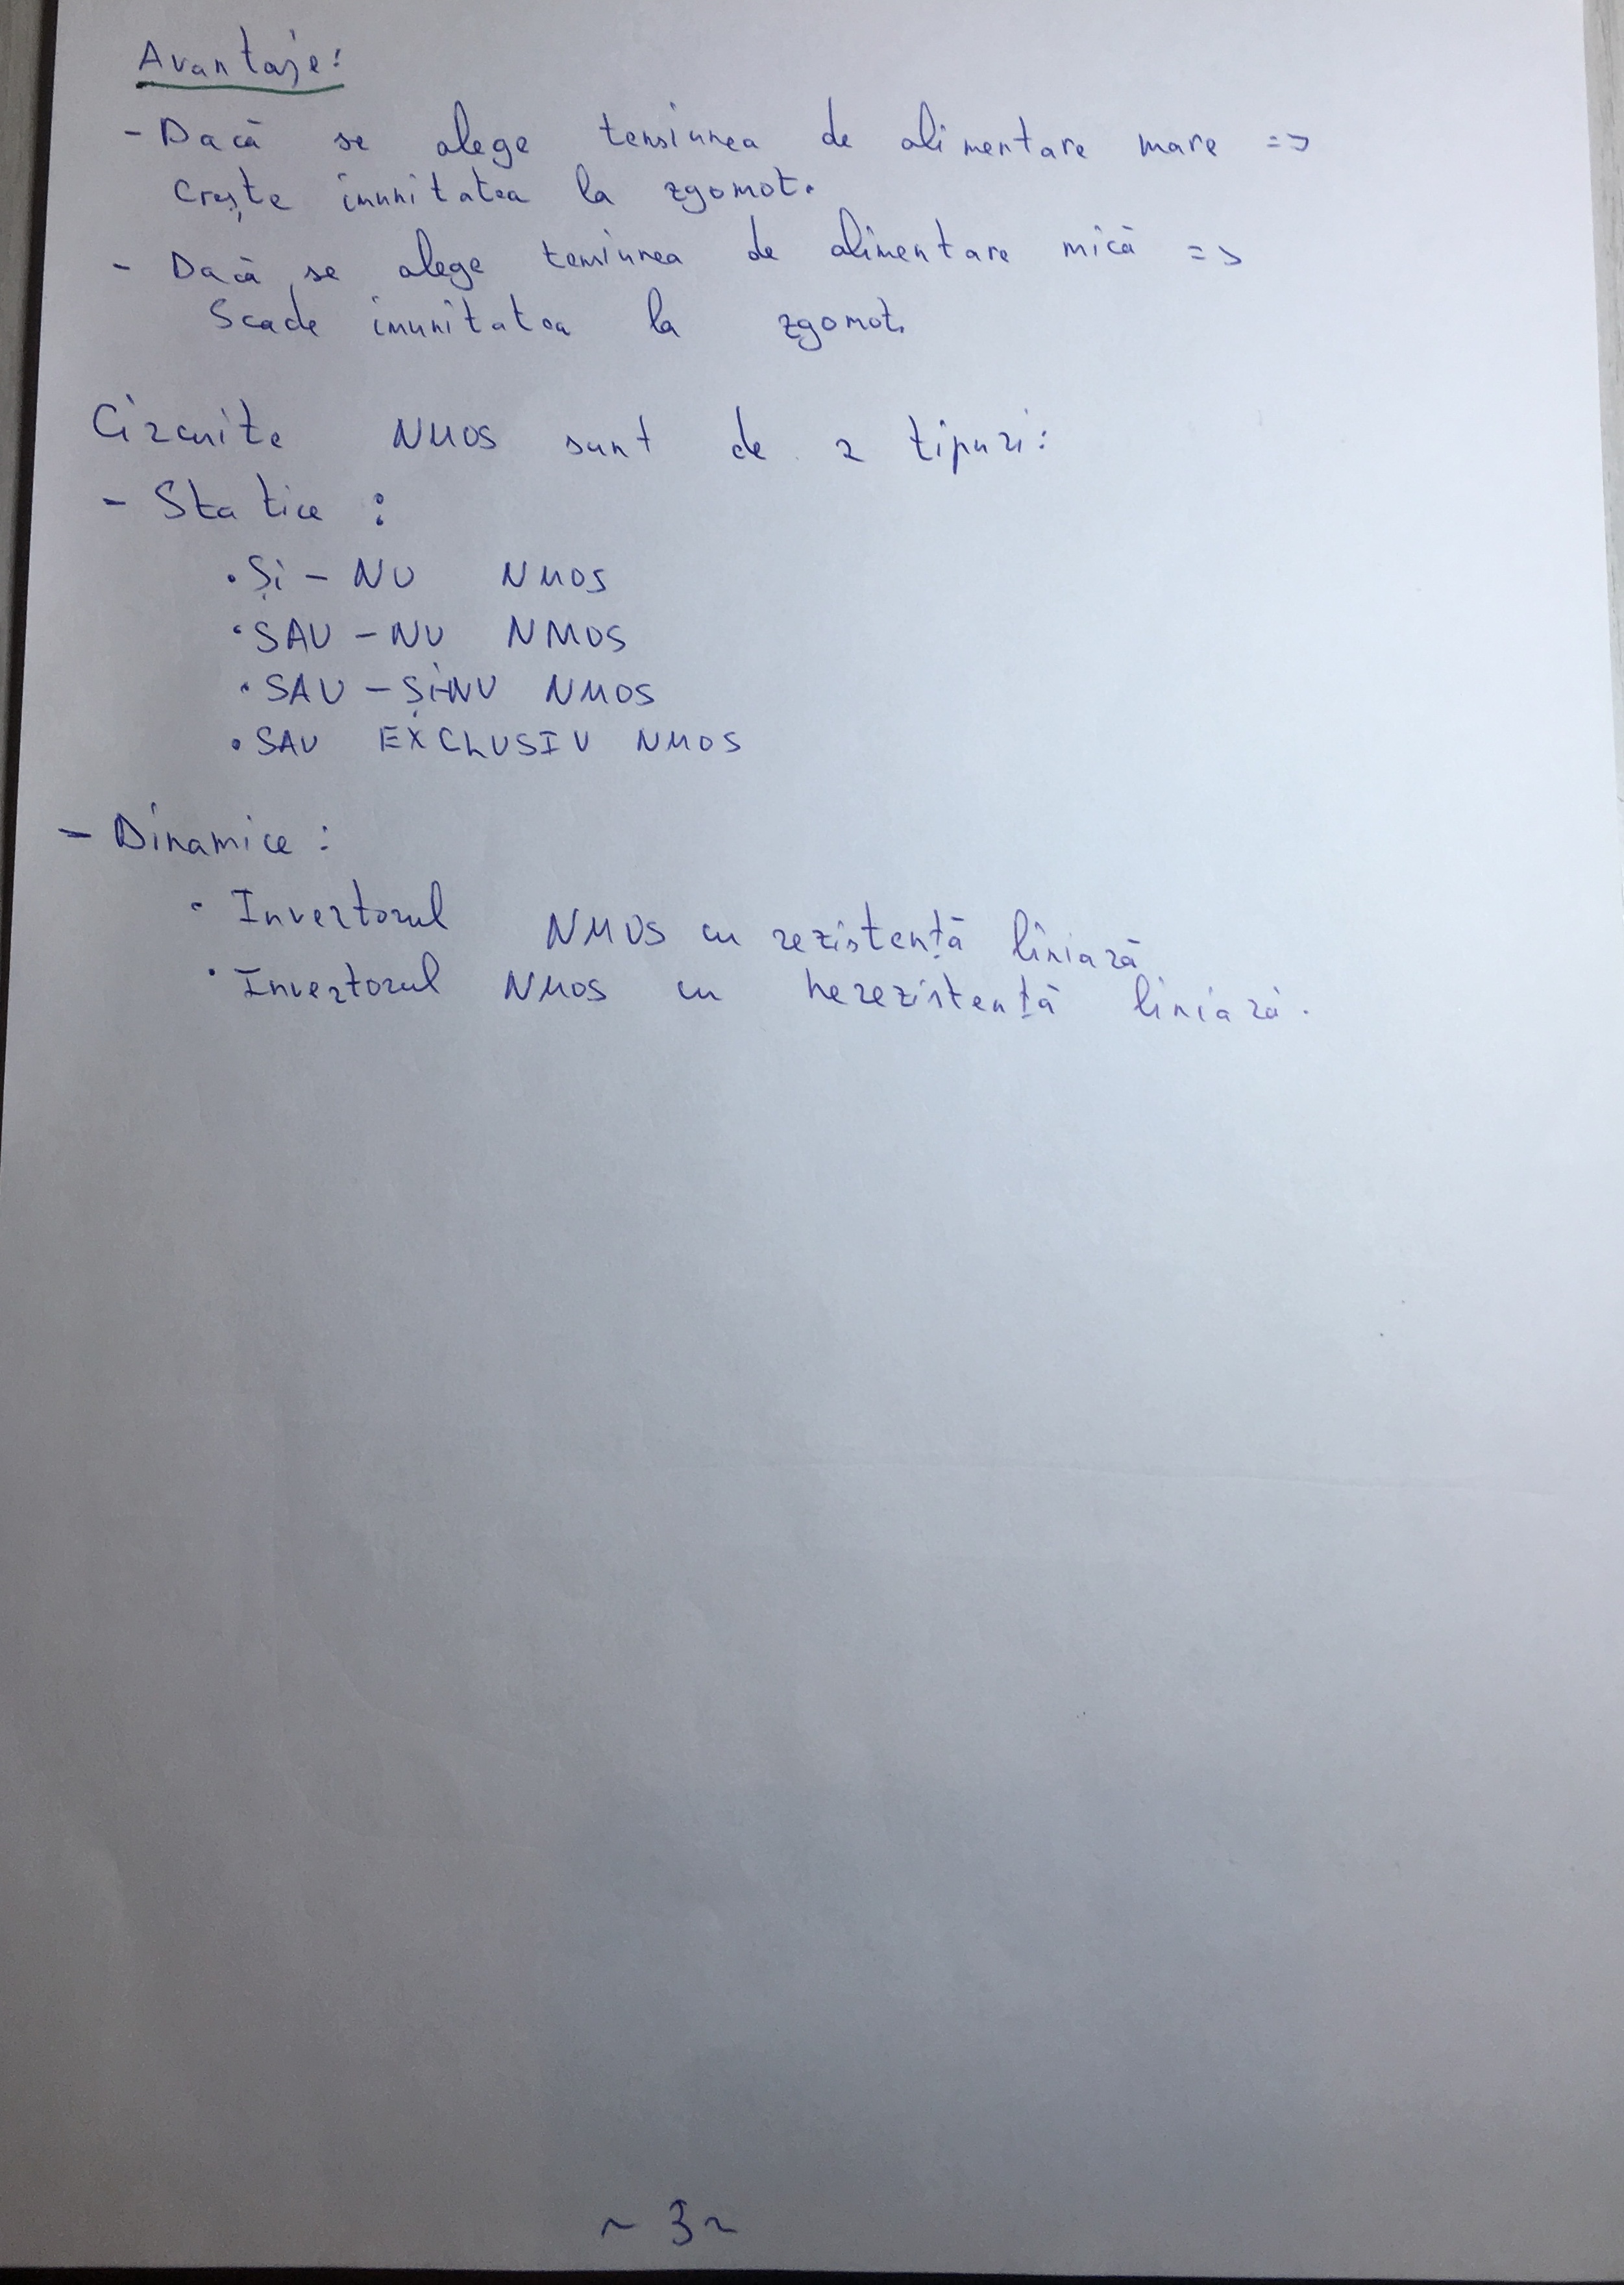 Avantaje:
- Dacă se alege tensiunea de alimentare mare =>
Crește imunitatea la zgomot.
- Dacă se alege tensiunea de alimentare mică =>
Scade imunitatea la zgomot.
Circuite NMOS sunt de 2 tipuri:
- Statice :
• Și - NU NMOS
• SAU - NU NMOS
• SAU - ȘI-NU NMOS
• SAU EXCLUSIV NMOS
- Dinamice :
• Invertorul NMOS cu rezistență liniară
• Invertorul NMOS cu nerezistență liniară.
~ 3 ~